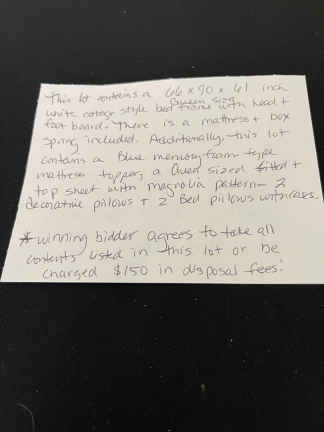 This lot contains a 66 x 90 x 61 inch
Queen size
white cottage style bed frame with head +
foot board. There is a mattress + box
spring included. Additionally, this lot
contains a Blue memory foam type
mattress topper, a Queen sized fitted +
top sheet with magnolia pattern - 2
decorative pillows + 2 Bed pillows with cases.
* winning bidder agrees to take all
contents listed in this lot or be
charged $150 in disposal fees!